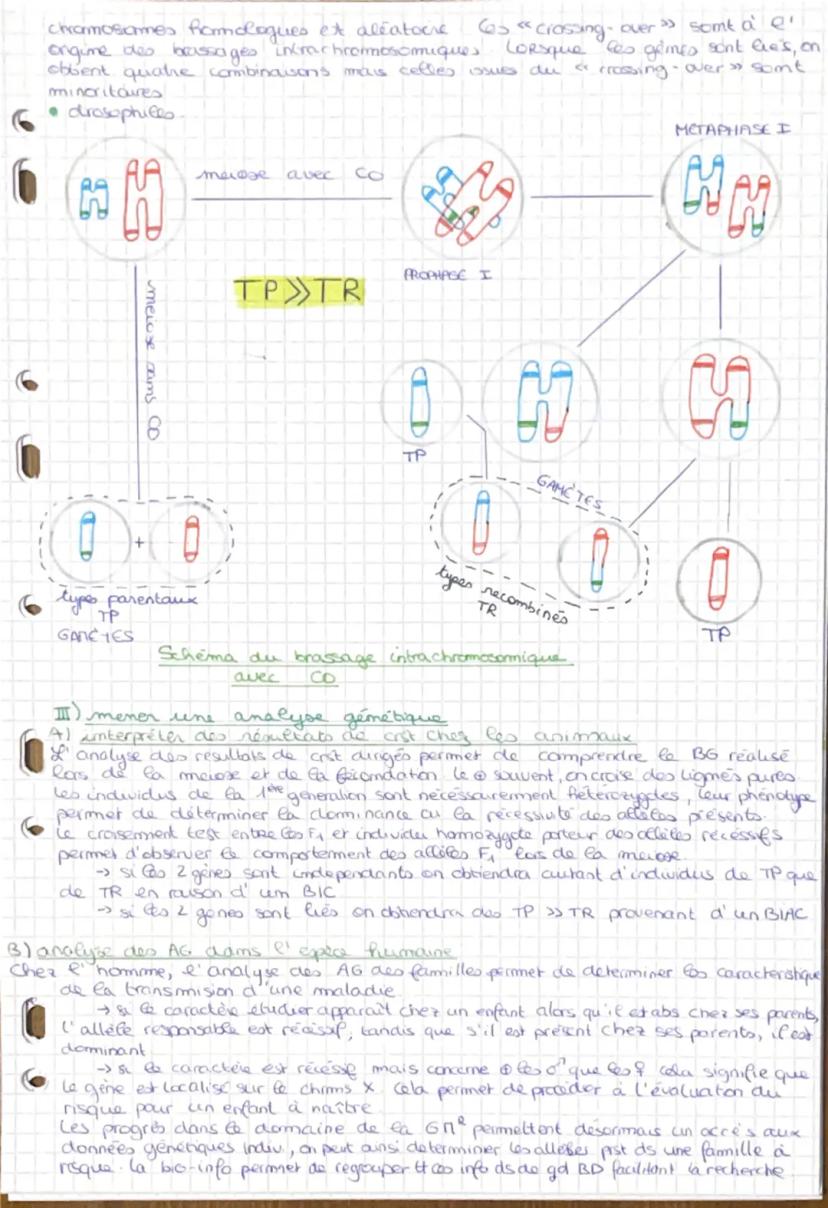 chromosomes homologues est aléatoire. Les «crossing-over» sont à l'
origine des brassages intrachromosomiques. Lorsque les gènes sont liés, on
obtient quatre combinaisons mais celles issues du «crossing-over» sont
minoritaires
• drosophiles
METAPHASE I
meiose avec CO
PROPHASE I
TP>>TR
meiose sans CO
TP
GAMÈTES
+
types parentaux
TP
GAMÈTES
types recombinés
TR
TP
Schéma du brassage intrachromosomique
avec CO
III) mener une analyse génétique
A) interpréter des résultats de crst chez les animaux
L'analyse des résultats de crst dirigés permet de comprendre le BG réalisé
lors de la meiose et de la fécondation. Le ⊕ souvent, on croise des lignés pures.
Les individus de la 1ère generation sont nécessairement hétérozygotes, leur phénotype
permet de déterminer la dominance ou la récessivité des allèles présents.
Le croisement test entre les F1 et individu homozygote porteur des allèles récessifs
permet d'observer le comportement des allèles F1 lors de la meiose.
→ si les 2 gènes sont independants on obtiendra autant d'individus de TP que
de TR en raison d'un BIC
→ si les 2 gènes sont liés on obtiendra des TP >> TR provenant d'un BIAC
B) analyse des AG dans l'espèce humaine
Chez l'homme, l'analyse des AG des familles permet de determiner les caracteristique
de la transmision d'une maladie.
→ si le caractère étudier apparaît chez un enfant alors qu'il est abs chez ses parents,
l'allèle responsable est récissif, tandis que s'il est présent chez ses parents, il est
dominant
→ si le caractère est récessif mais concerne ⊕ les ♂ que les ♀ cela signifie que
le gène est localisé sur le chrms X. Cela permet de procéder à l'évaluation du
risque pour un enfant à naître.
Les progrès dans le domaine de la permettent désormais un accés aux
données génétiques indiv., on peut ainsi determiner les allèles pst ds une famille à
risque. La bio-info permet de regrouper tt ces info ds de gd BD facilitant la recherche